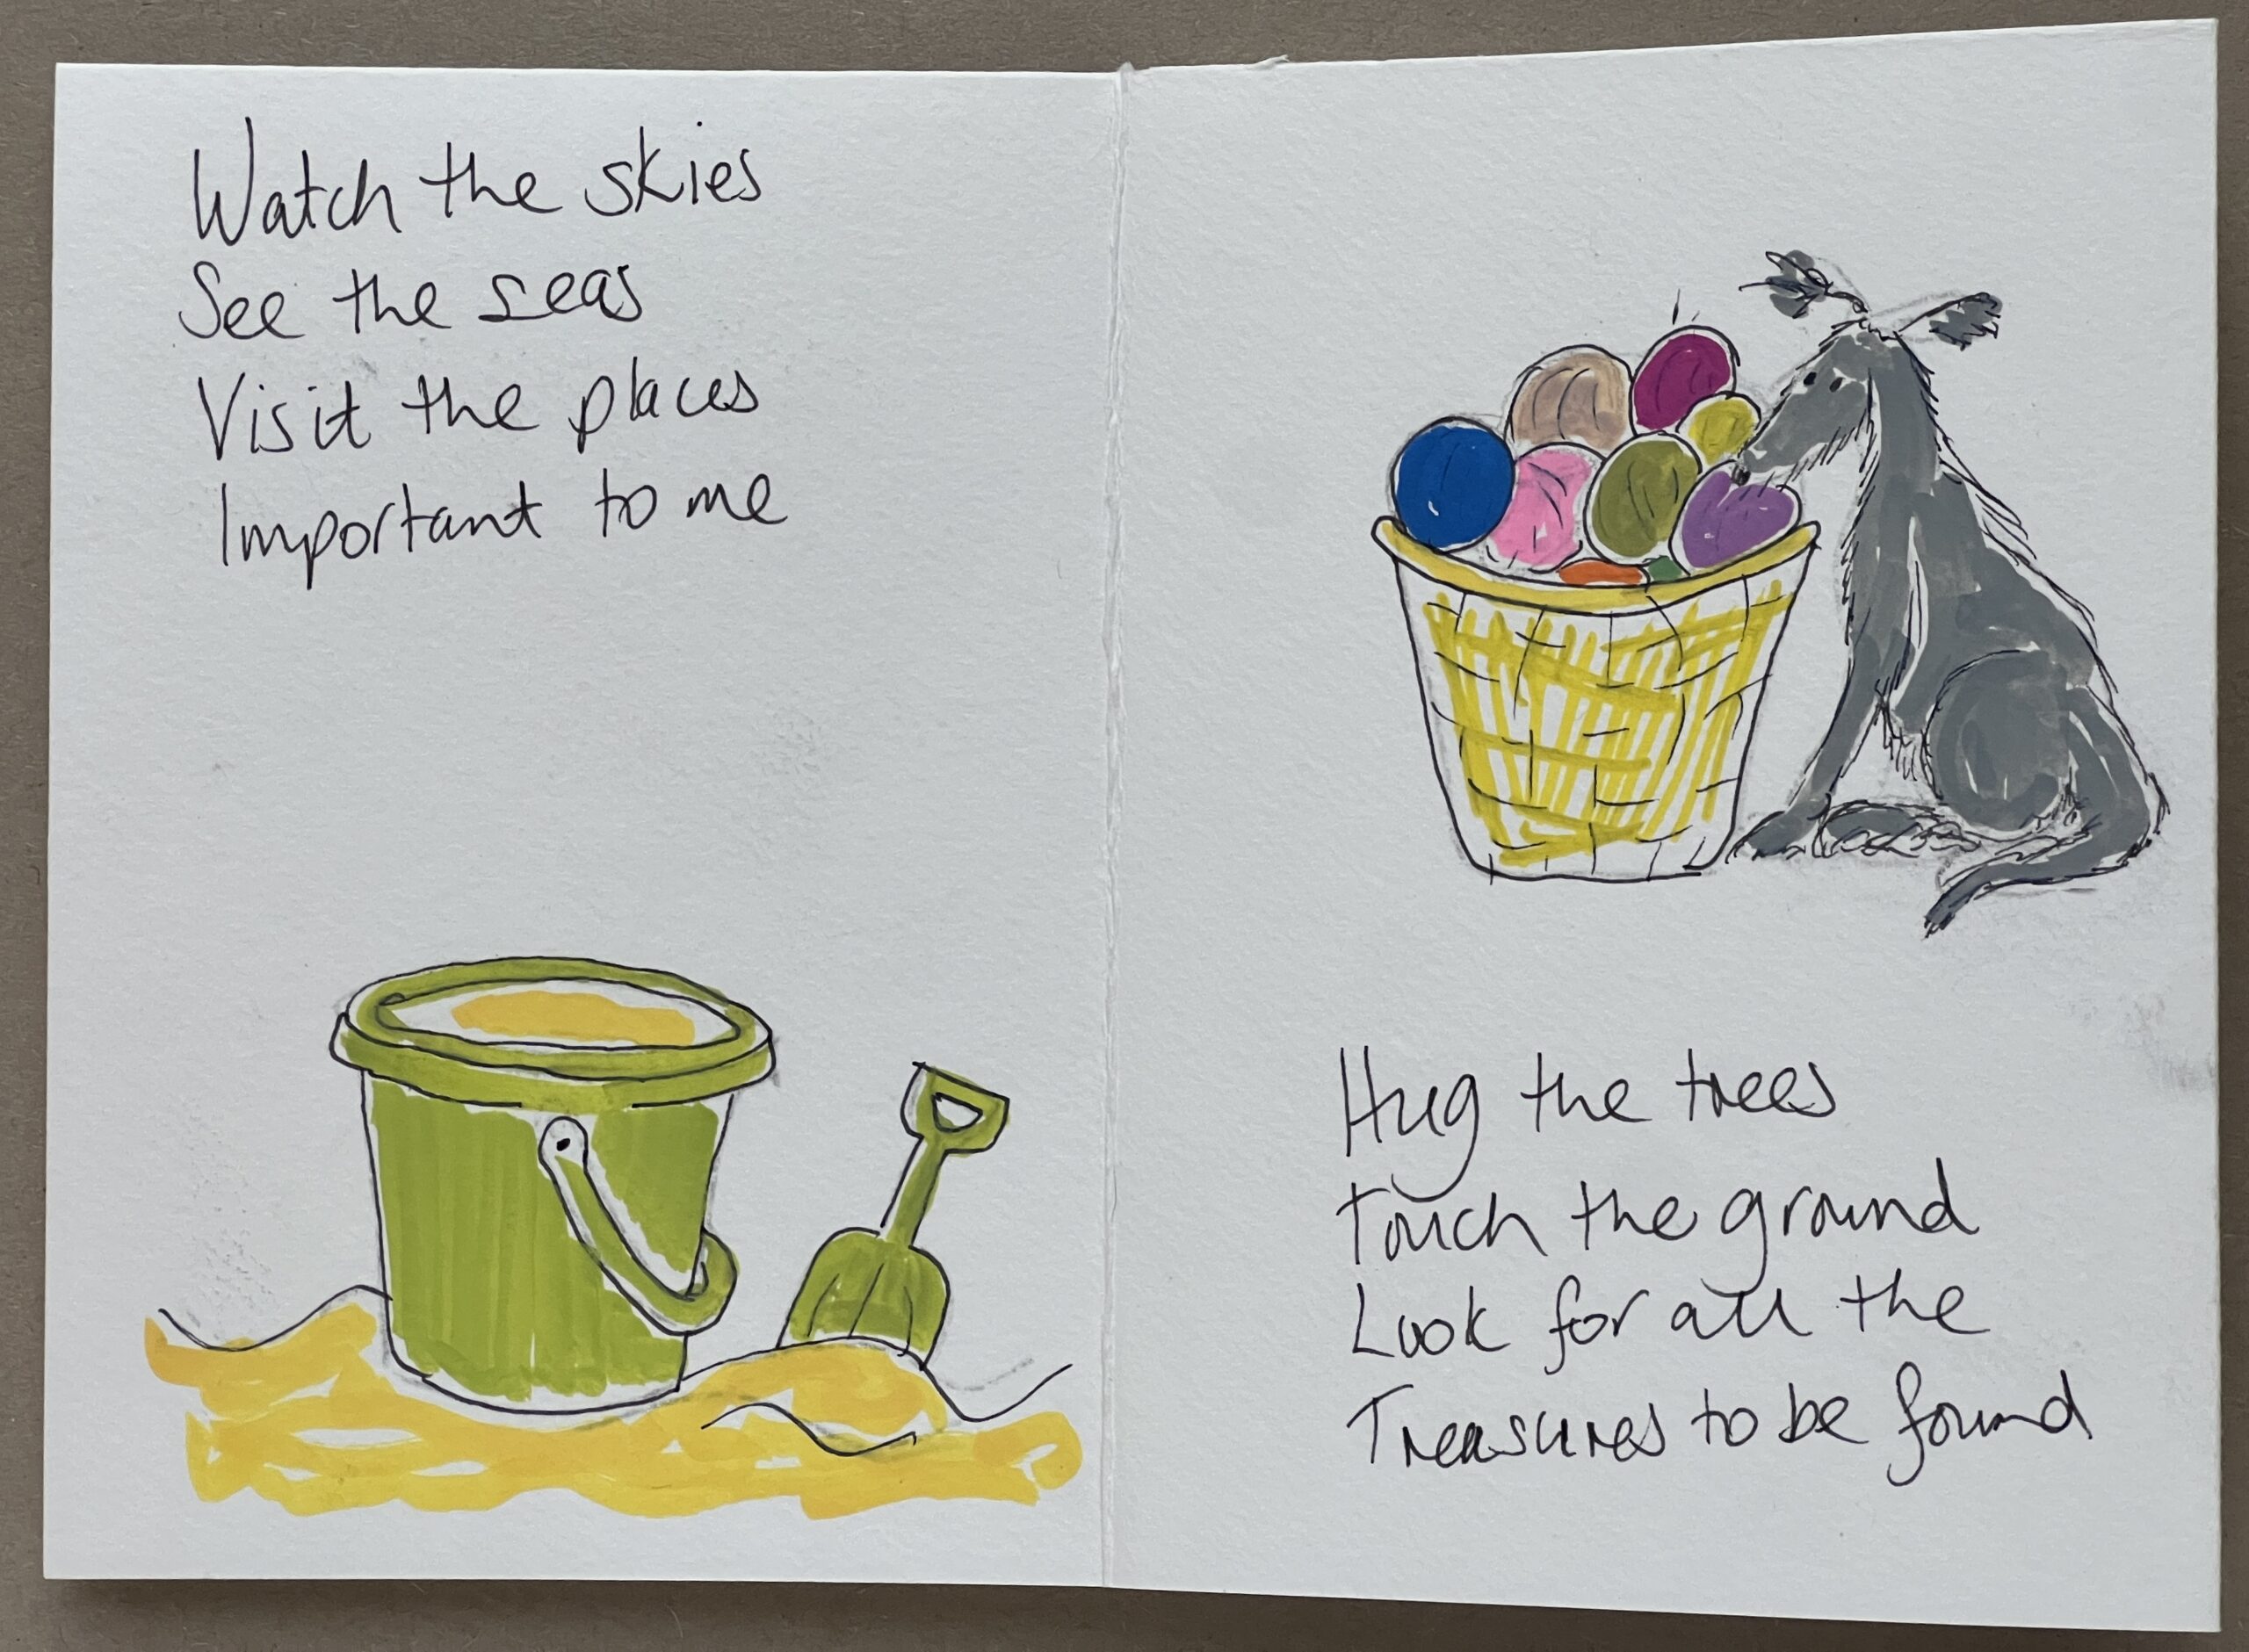 Watch the skies
See the seas
Visit the places
Important to me
Hug the trees
Touch the ground
Look for all the
Treasures to be found